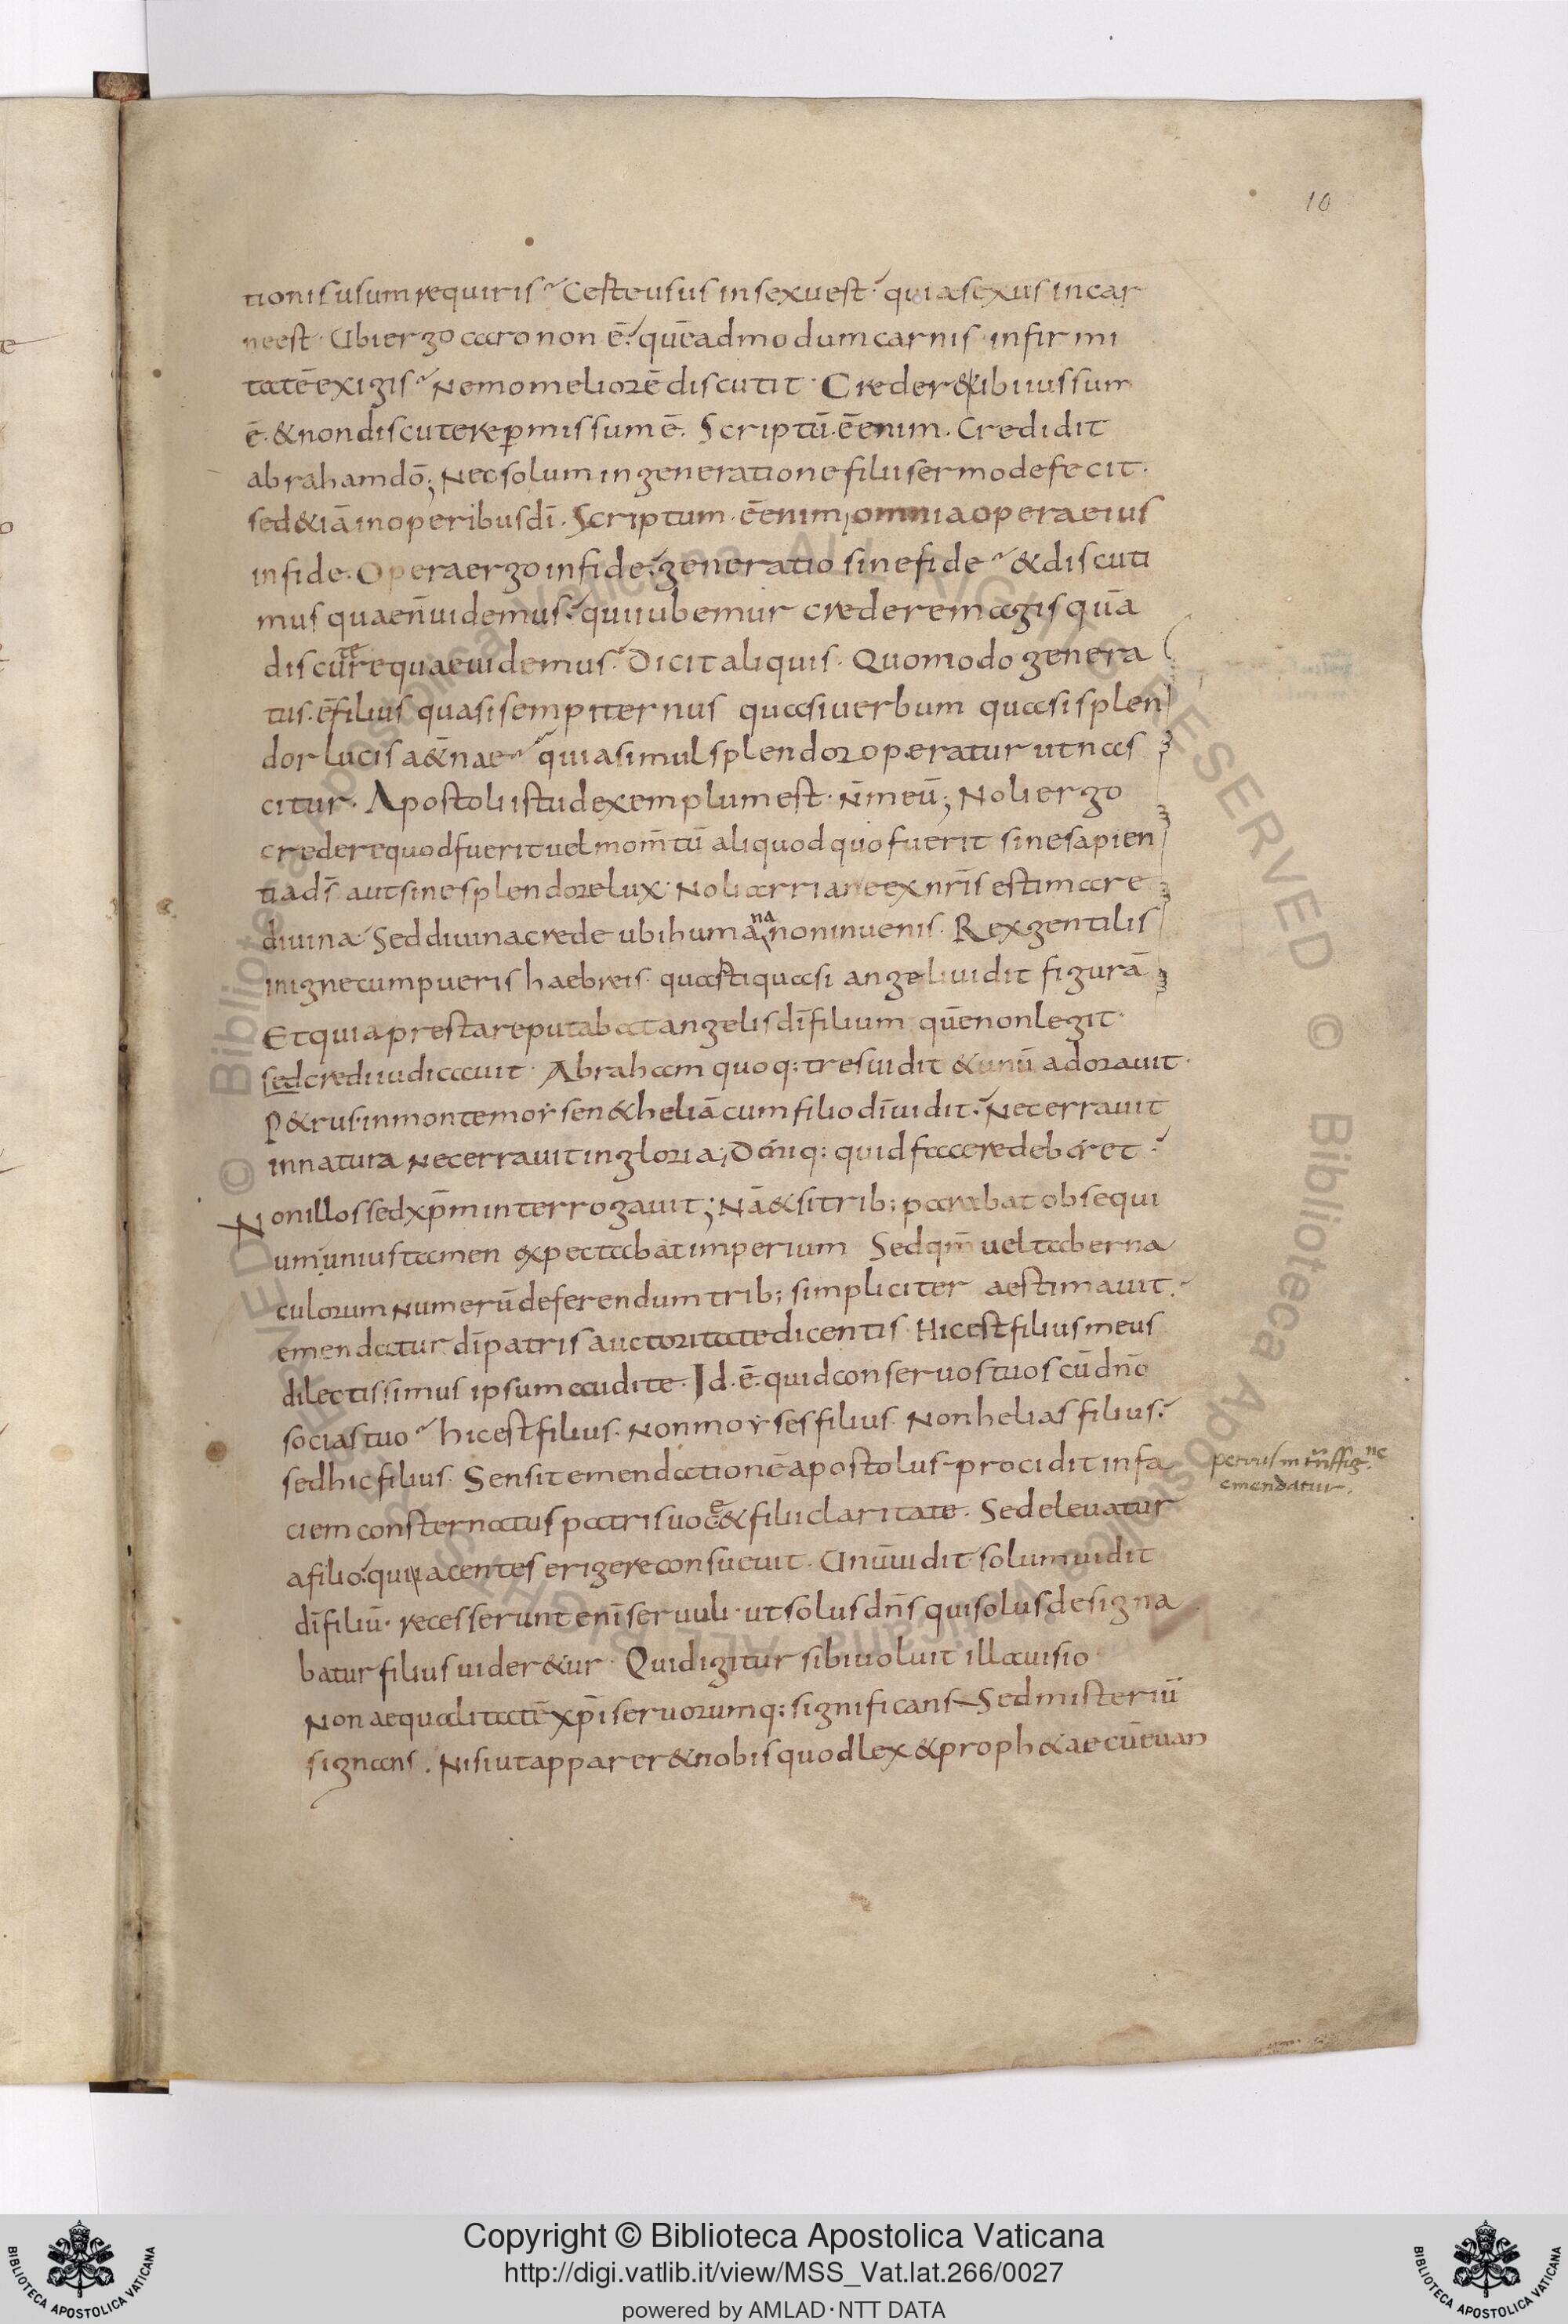 10
tionis usum requiris? Certe usus in sexu est? quia sexus in car
ne est. Ubi ergo caro non ē? quēadmodum carnis infirmi
tatē exigis? Nemo meliorē discutit. Credere tibi iussum
ē. & non discutere pmissum ē. Scriptū. ē enim. Credidit
abraham dō; Nec solum in generatione filii sermo defecit.
sed & iā in operibus dī. Scriptum. ē enim; omnia opera eius
in fide. Opera ergo in fide? generatio sine fide? & discuti
mus quae n̄ videmus? qui iubemur credere magis quā
discutere quae videmus? Dicit aliquis. Quomodo genera
tus. ē filius quasi sempiternus quasi verbum quasi splen
dor lucis a&nae? quia simul splendor operatur ut nas
citur. Apostoli istud exemplum est. N̄ meū; Noli ergo
credere quod fuerit vel mom̄tū aliquod quo fuerit sine sapien
tia d̄s aut sine splendore lux. Noli arriane ex nr̄is estimare
divina. Sed divina crede ubi humana non invenis. Rex gentilis
in igne cum pueris haebreis quarti quasi angeli vidit figurā
Et quia prestare putabat angelis dī filium quē non legit.
sed credi iudicavit. Abraham quoq; tres vidit & unū adoravit.
P&rus in monte moysen & heliā cum filio dī vidit. Nec erravit
in natura Nec erravit in gloria; Deniq; quid facere deberet?
Non illos sed xp̄m interrogavit; Nā & si trib; parabat obsequi
um; unius tamen expectabat imperium Sed qm̄ vel taberna
culorum numerū deferendum trib; simpliciter aestimavit.
emendatur dī patris auctoritate dicentis Hic est filius meus
dilectissimus ipsum audite. Id. ē. quid conservos tuos cū dn̄o
socias tuo? hic est filius. Non moyses filius. Non helias filius?
sed hic filius. Sensit emendationē apostolus procidit in fa
ciem consternatus patris voce & filii claritate. Sed elevatur
a filio. qui iacentes erigere consuevit. Unū vidit solum vidit
dī filiū. recesserunt enī servuli. ut solus dn̄s qui solus designa
batur filius vider&ur. Quid igitur sibi voluit illa visio
Non aequalitatē xp̄i servorumq; significans Sed misteriū
signans. Nisi ut apparer& nobis quod lex & proph&ae cū evan
petrus in
emendatur.
Copyright © Biblioteca Apostolica Vaticana
http://digi.vatlib.it/view/MSS_Vat.lat.266/0027
powered by AMLAD·NTT DATA
BIBLIOTECA APOSTOLICA VATICANA
BIBLIOTECA APOSTOLICA VATICANA